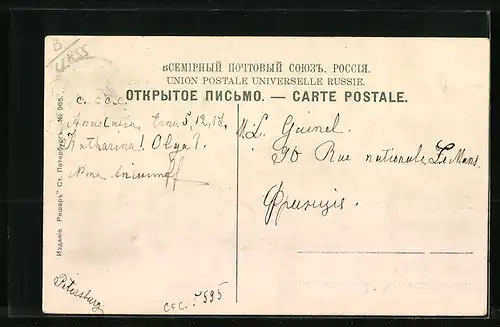 В
URSS
ВСЕМІРНЫЙ ПОЧТОВЫЙ СОЮЗЪ. РОССІЯ.
UNION POSTALE UNIVERSELLE RUSSIE.
ОТКРЫТОЕ ПИСЬМО. — CARTE POSTALE.
c. c.c.c.
Anastasia, 5, 12, 17,
Katharina! Olga?
M. L. Guinel.
90 Rue nationale Le Mans.
Франція.
Изданіе „Ришаръ“ Ст. Петербургъ. № 965.
Petersburg
ccc. 595